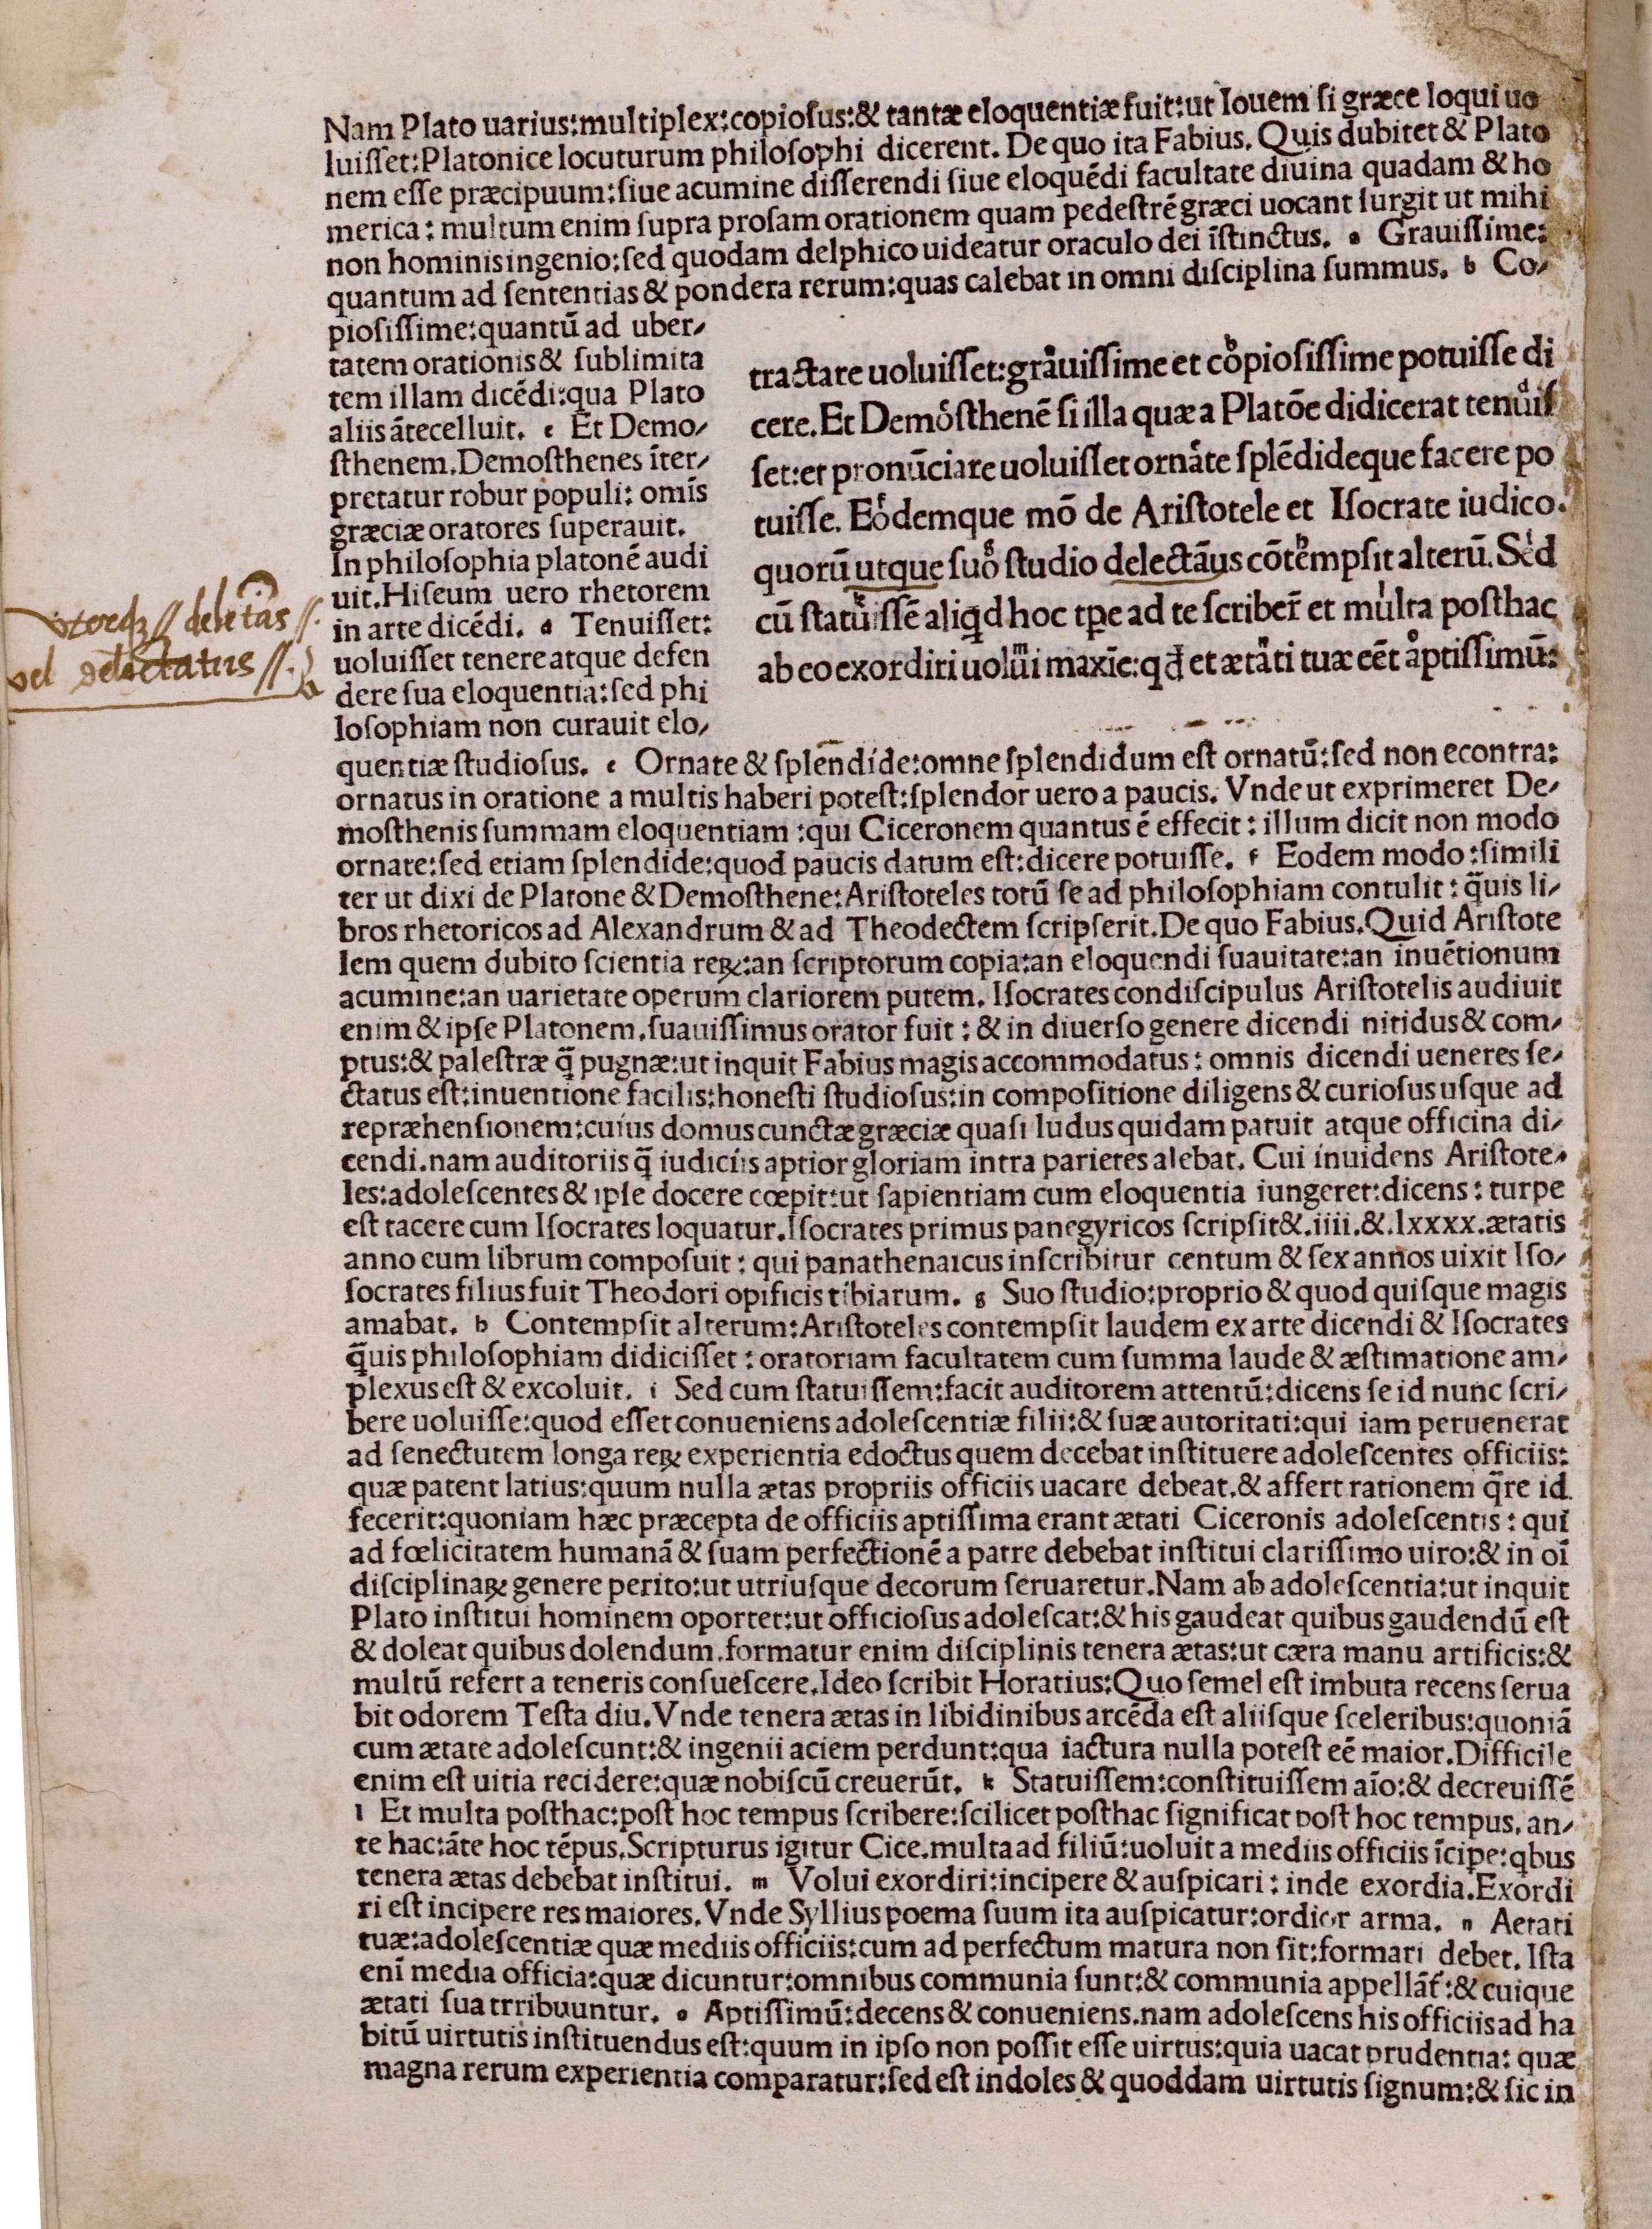 Nam Plato uarius:multiplex:copiosus:& tantæ eloquentiæ fuit:ut Iouem si græce loqui uo
luisset:Platonice locuturum philosophi dicerent. De quo ita Fabius. Quis dubitet & Plato
nem esse præcipuum:siue acumine disserendi siue eloquẽdi facultate diuina quadam & ho
merica: multum enim supra prosam orationem quam pedestrẽ græci uocant surgit ut mihi
non hominis ingenio:sed quodam delphico uideatur oraculo dei ĩstinctus. a Grauissime:
quantum ad sententias & pondera rerum:quas calebat in omni disciplina summus. b Co/
piosissime:quantũ ad uber/
tatem orationis & sublimita
tem illam dicẽdi:qua Plato
aliis ãtecelluit. c Et Demo/
sthenem.Demosthenes ĩter/
pretatur robur populi: omĩs
græciæ oratores superauit.
In philosophia platonẽ audi
uit.Hiseum uero rhetorem
in arte dicẽdi. d Tenuisset:
uoluisset tenere atque defen
dere sua eloquentia:sed phi
losophiam non curauit elo/
tractare uoluisset:grauissime et copiosissime potuisse di
cere.Et Demosthenẽ si illa quæ a Platõe didicerat tenuis
set:et pronũciare uoluisset ornate splẽdideque facere po
tuisse. Eodemque mõ de Aristotele et Isocrate iudico.
quorũ utque suo studio delectãus cõtempsit alterũ. Sed
cũ statuissẽ aliqd hoc tpe ad te scriber̃ et multa posthac
ab eo exordiri uolui maxĩe:qđ et ætati tuæ eẽt aptissimũ:
vel delectatus //.
quentiæ studiosus. e Ornate & splendide:omne splendidum est ornatũ:sed non econtra:
ornatus in oratione a multis haberi potest:splendor uero a paucis. Vnde ut exprimeret De/
mosthenis summam eloquentiam :qui Ciceronem quantus ẽ effecit : illum dicit non modo
ornate:sed etiam splendide:quod paucis datum est:dicere potuisse. f Eodem modo :simili
ter ut dixi de Platone & Demosthene:Aristoteles totũ se ad philosophiam contulit : q̃uis li/
bros rhetoricos ad Alexandrum & ad Theodectem scripserit.De quo Fabius.Quid Aristote
lem quem dubito scientia reꝝ:an scriptorum copia:an eloquendi suauitate:an inuẽtionum
acumine:an uarietate operum clariorem putem. Isocrates condiscipulus Aristotelis audiuit
enim & ipse Platonem.suauissimus orator fuit : & in diuerso genere dicendi nitidus & com/
ptus:& palestræ q̃ pugnæ:ut inquit Fabius magis accommodatus : omnis dicendi ueneres se/
ctatus est:inuentione facilis:honesti studiosus:in compositione diligens & curiosus usque ad
repræhensionem:cuius domus cunctæ græciæ quasi ludus quidam patuit atque officina di/
cendi.nam auditoriis q̃ iudiciis aptior gloriam intra parietes alebat. Cui inuidens Aristote/
les:adolescentes & ipse docere cœpit:ut sapientiam cum eloquentia iungeret:dicens : turpe
est tacere cum Isocrates loquatur.Isocrates primus panegyricos scripsit&.iiii.&.lxxxx.ætatis
anno eum librum composuit : qui panathenaicus inscribitur centum & sex annos uixit Iso/
socrates filius fuit Theodori opificis tibiarum. g Suo studio:proprio & quod quisque magis
amabat. h Contempsit alterum:Aristoteles contempsit laudem ex arte dicendi & Isocrates
q̃uis philosophiam didicisset : oratoriam facultatem cum summa laude & æstimatione am/
plexus est & excoluit. i Sed cum statuissem:facit auditorem attentũ:dicens se id nunc scri/
bere uoluisse:quod esset conueniens adolescentiæ filii:& suæ autoritati:qui iam peruenerat
ad senectutem longa reꝝ experientia edoctus quem decebat instituere adolescentes officiis:
quæ patent latius:quum nulla ætas propriis officiis uacare debeat.& affert rationem q̃re id
fecerit:quoniam hæc præcepta de officiis aptissima erant ætati Ciceronis adolescentis : qui
ad fœlicitatem humanã & suam perfectionẽ a patre debebat institui clarissimo uiro:& in oĩ
disciplinaꝝ genere perito:ut utriusque decorum seruaretur.Nam ab adolescentia:ut inquit
Plato institui hominem oportet:ut officiosus adolescat:& his gaudeat quibus gaudendũ est
& doleat quibus dolendum.formatur enim disciplinis tenera ætas:ut cæra manu artificis:&
multũ refert a teneris consuescere.Ideo scribit Horatius:Quo semel est imbuta recens serua
bit odorem Testa diu.Vnde tenera ætas in libidinibus arcẽda est aliisque sceleribus:quoniã
cum ætate adolescunt:& ingenii aciem perdunt:qua iactura nulla potest eẽ maior.Difficile
enim est uitia recidere:quæ nobiscũ creuerũt. k Statuissem:constituissem aĩo:& decreuissẽ
l Et multa posthac:post hoc tempus scribere:scilicet posthac significat post hoc tempus. an/
te hac:ãte hoc tẽpus.Scripturus igitur Cice.multa ad filiũ:uoluit a mediis officiis ĩcipe:qbus
tenera ætas debebat institui. m Volui exordiri:incipere & auspicari : inde exordia.Exordi
ri est incipere res maiores.Vnde Syllius poema suum ita auspicatur:ordior arma. n Aetati
tuæ:adolescentiæ quæ mediis officiis:cum ad perfectum matura non sit:formari debet. Ista
enĩ media officia:quæ dicuntur:omnibus communia sunt:& communia appellãt̃:& cuique
ætati sua trribuuntur. o Aptissimũ:decens & conueniens.nam adolescens his officiis ad ha
bitũ uirtutis instituendus est:quum in ipso non possit esse uirtus:quia uacat prudentia: quæ
magna rerum experientia comparatur:sed est indoles & quoddam uirtutis signum:& sic in